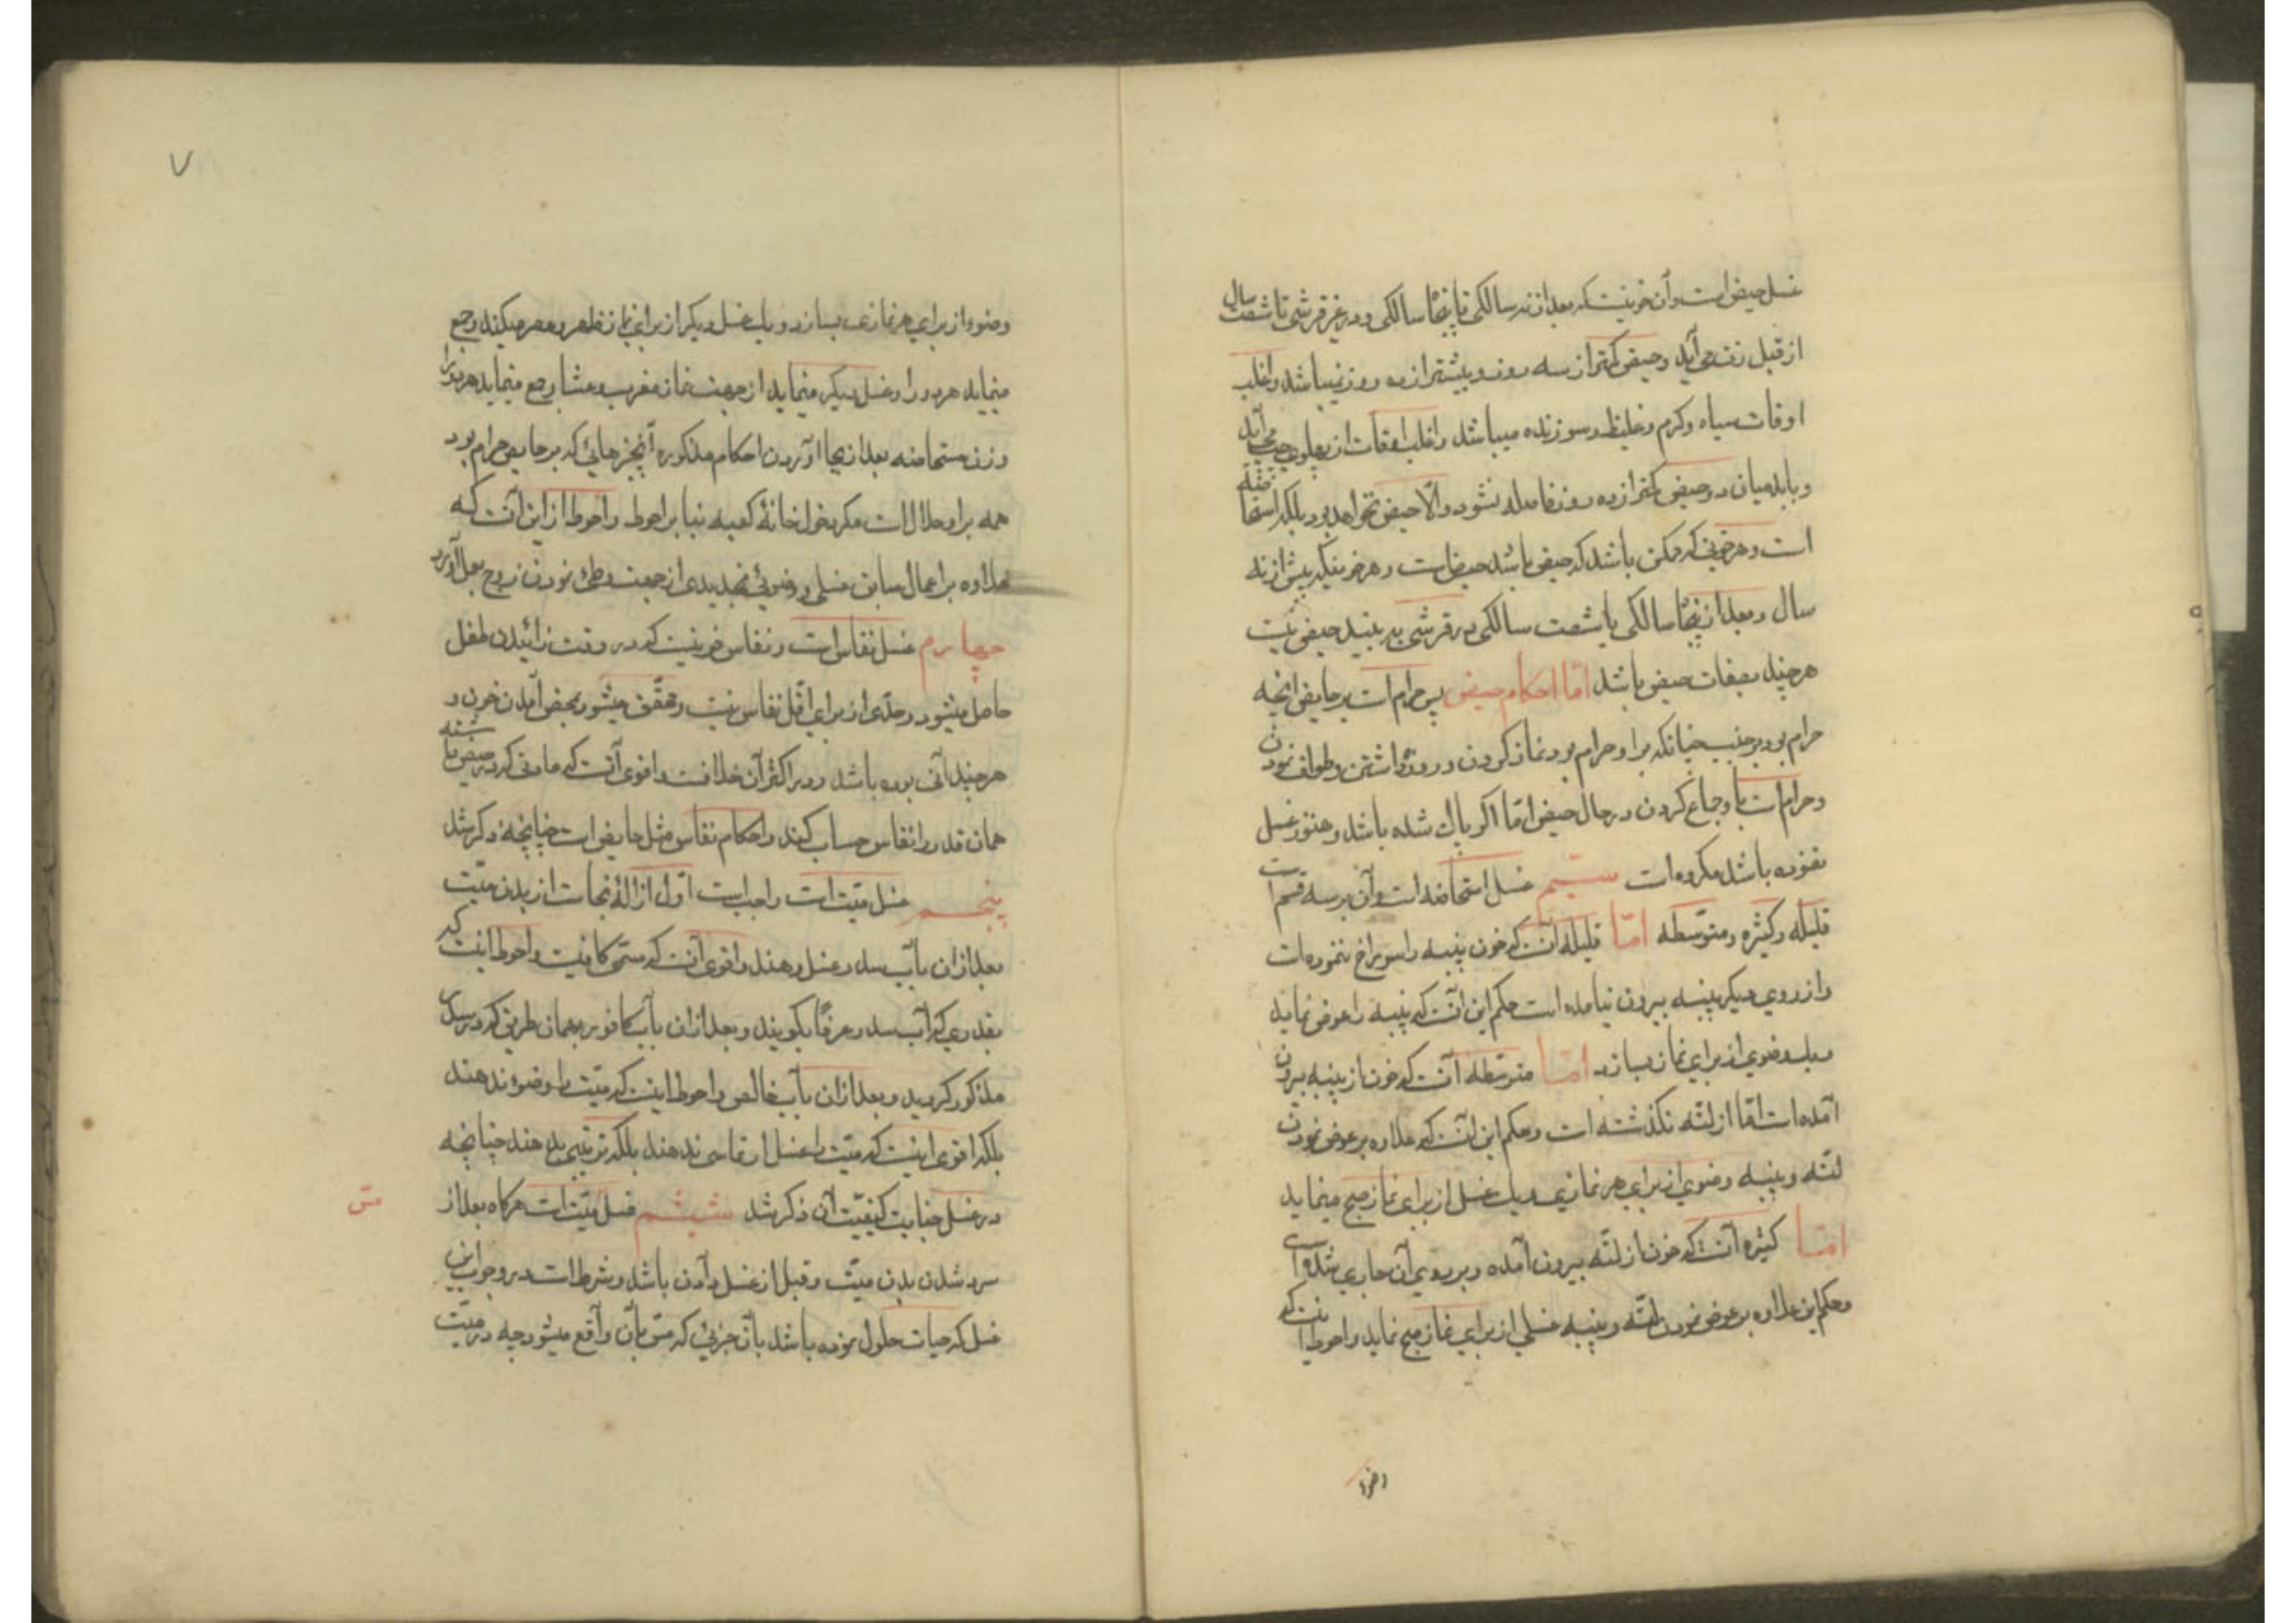 غسل حیض است و آن خونیست که بعد از نه سالگی تا پنجاه سالگی و در غیر قرشی تا شصت سال
از قبل زن می‌آید و حیض کمتر از سه روز و بیشتر از ده روز نمیباشد و اغلب
اوقات سیاه و گرم و غلیظ و سوزنده میباشد و اغلب اوقات از پهلوی چپ می‌آید
و باید میان دو حیض کمتر از ده روز فاصله نشود و الّا حیض نخواهد بود بلکه استحاضه
است و هر خونی که ممکن باشد که حیض باشد حیض است و هر خونیکه پیش از نه
سال و بعد از پنجاه سالگی یا شصت سالگی در قرشی به بیند حیض نیست
هر چند بصفات حیض باشد امّا احکام حیض پس حرام است بر حایض آنچه
حرام بود بر جنب چنانکه بر او حرام بود نماز کردن و روزه داشتن و طواف نمودن
و حرام است با او جماع کردن در حال حیض امّا اگر پاک شده باشد و هنوز غسل
ننموده باشد مکروه است سیّیم غسل استحاضه است و آن بر سه قسم است
قلیله و کثیره و متوسّطه امّا قلیله آنست که خون پنبه را سوراخ ننموده است
و از روی دیگر پنبه بیرون نیامده است حکم این آنست که پنبه را عوض نماید
و یک وضوی از برای نماز بسازد امّا متوسّطه آنست که خون از پنبه بیرون
آمده است امّا از لتّه نگذشته است و حکم این آنست که علاوه بر عوض نمودن
لتّه و پنبه وضوی از برای هر نمازی و یک غسل از برای نماز صبح مینماید
امّا کثیره آنست که خون از لتّه بیرون آمده و بر روی آن جاری شده است
و حکم این علاوه بر عوض نمودن لتّه و پنبه غسلی از برای نماز صبح نماید و احوط اینست که
وضوء
۷
وضوء از برای هر نمازی بسازد و یک غسل دیگر از برای نماز ظهر و عصر میکند و جمع
مینماید هر دو را و غسل دیگر مینماید از جهت نماز مغرب و عشا و جمع مینماید هر دو را
و زن مستحاضه بعد از بجا آوردن احکام مذکوره آنچیزهائی که بر حایض حرام بود
همه بر او حلال است مگر دخول خانهٔ کعبه بنا بر احوط و احوط از این آنست که
علاوه بر اعمال سابق غسلی و وضوئی تجدیدی از جهت وطی نمودن زوج بعمل آورد
چهارم غسل نفاس است و نفاس خونیست که در وقت زائیدن طفل
حاصل میشود و حدّی از برای اقّل نفاس نیست و محقّق میشود بمحض آمدن خون و
هر چند آنی بوده باشد و در اکثر آن خلافست و اقوی آنست که عادتی که در حیض داشته
همان قدر را نفاس حساب کند و احکام نفاس مثل حایض است چنانچه ذکر شد
پنجم غسل میّت است واجب است اوّل ازالهٔ نجاست از بدن میّت
بعد از آن بآب سدر غسل دهند و اقوی آنست که مسمّی کافیست و احوط اینست که
بقدری که آب سدر عرفاً بگویند و بعد از آن بآب کافور بهمان طریق که در سدر
مذکور گردید و بعد از آن بآب خالص و احوط اینست که میّت را وضوء ندهند
بلکه اقوی اینست که میّت را غسل ارتماسی ندهند بلکه ترتیبی بدهند چنانچه
در غسل جنابت کیفیّت آن ذکر شد ششم غسل میّت است هرگاه بعد از
مسّ
سرد شدن بدن میّت و قبل از غسل دادن باشد و شرط است در وجوب این
غسل که حیات حلول نموده باشد بآن جزئی که مسّ بآن واقع میشود چه در میّت